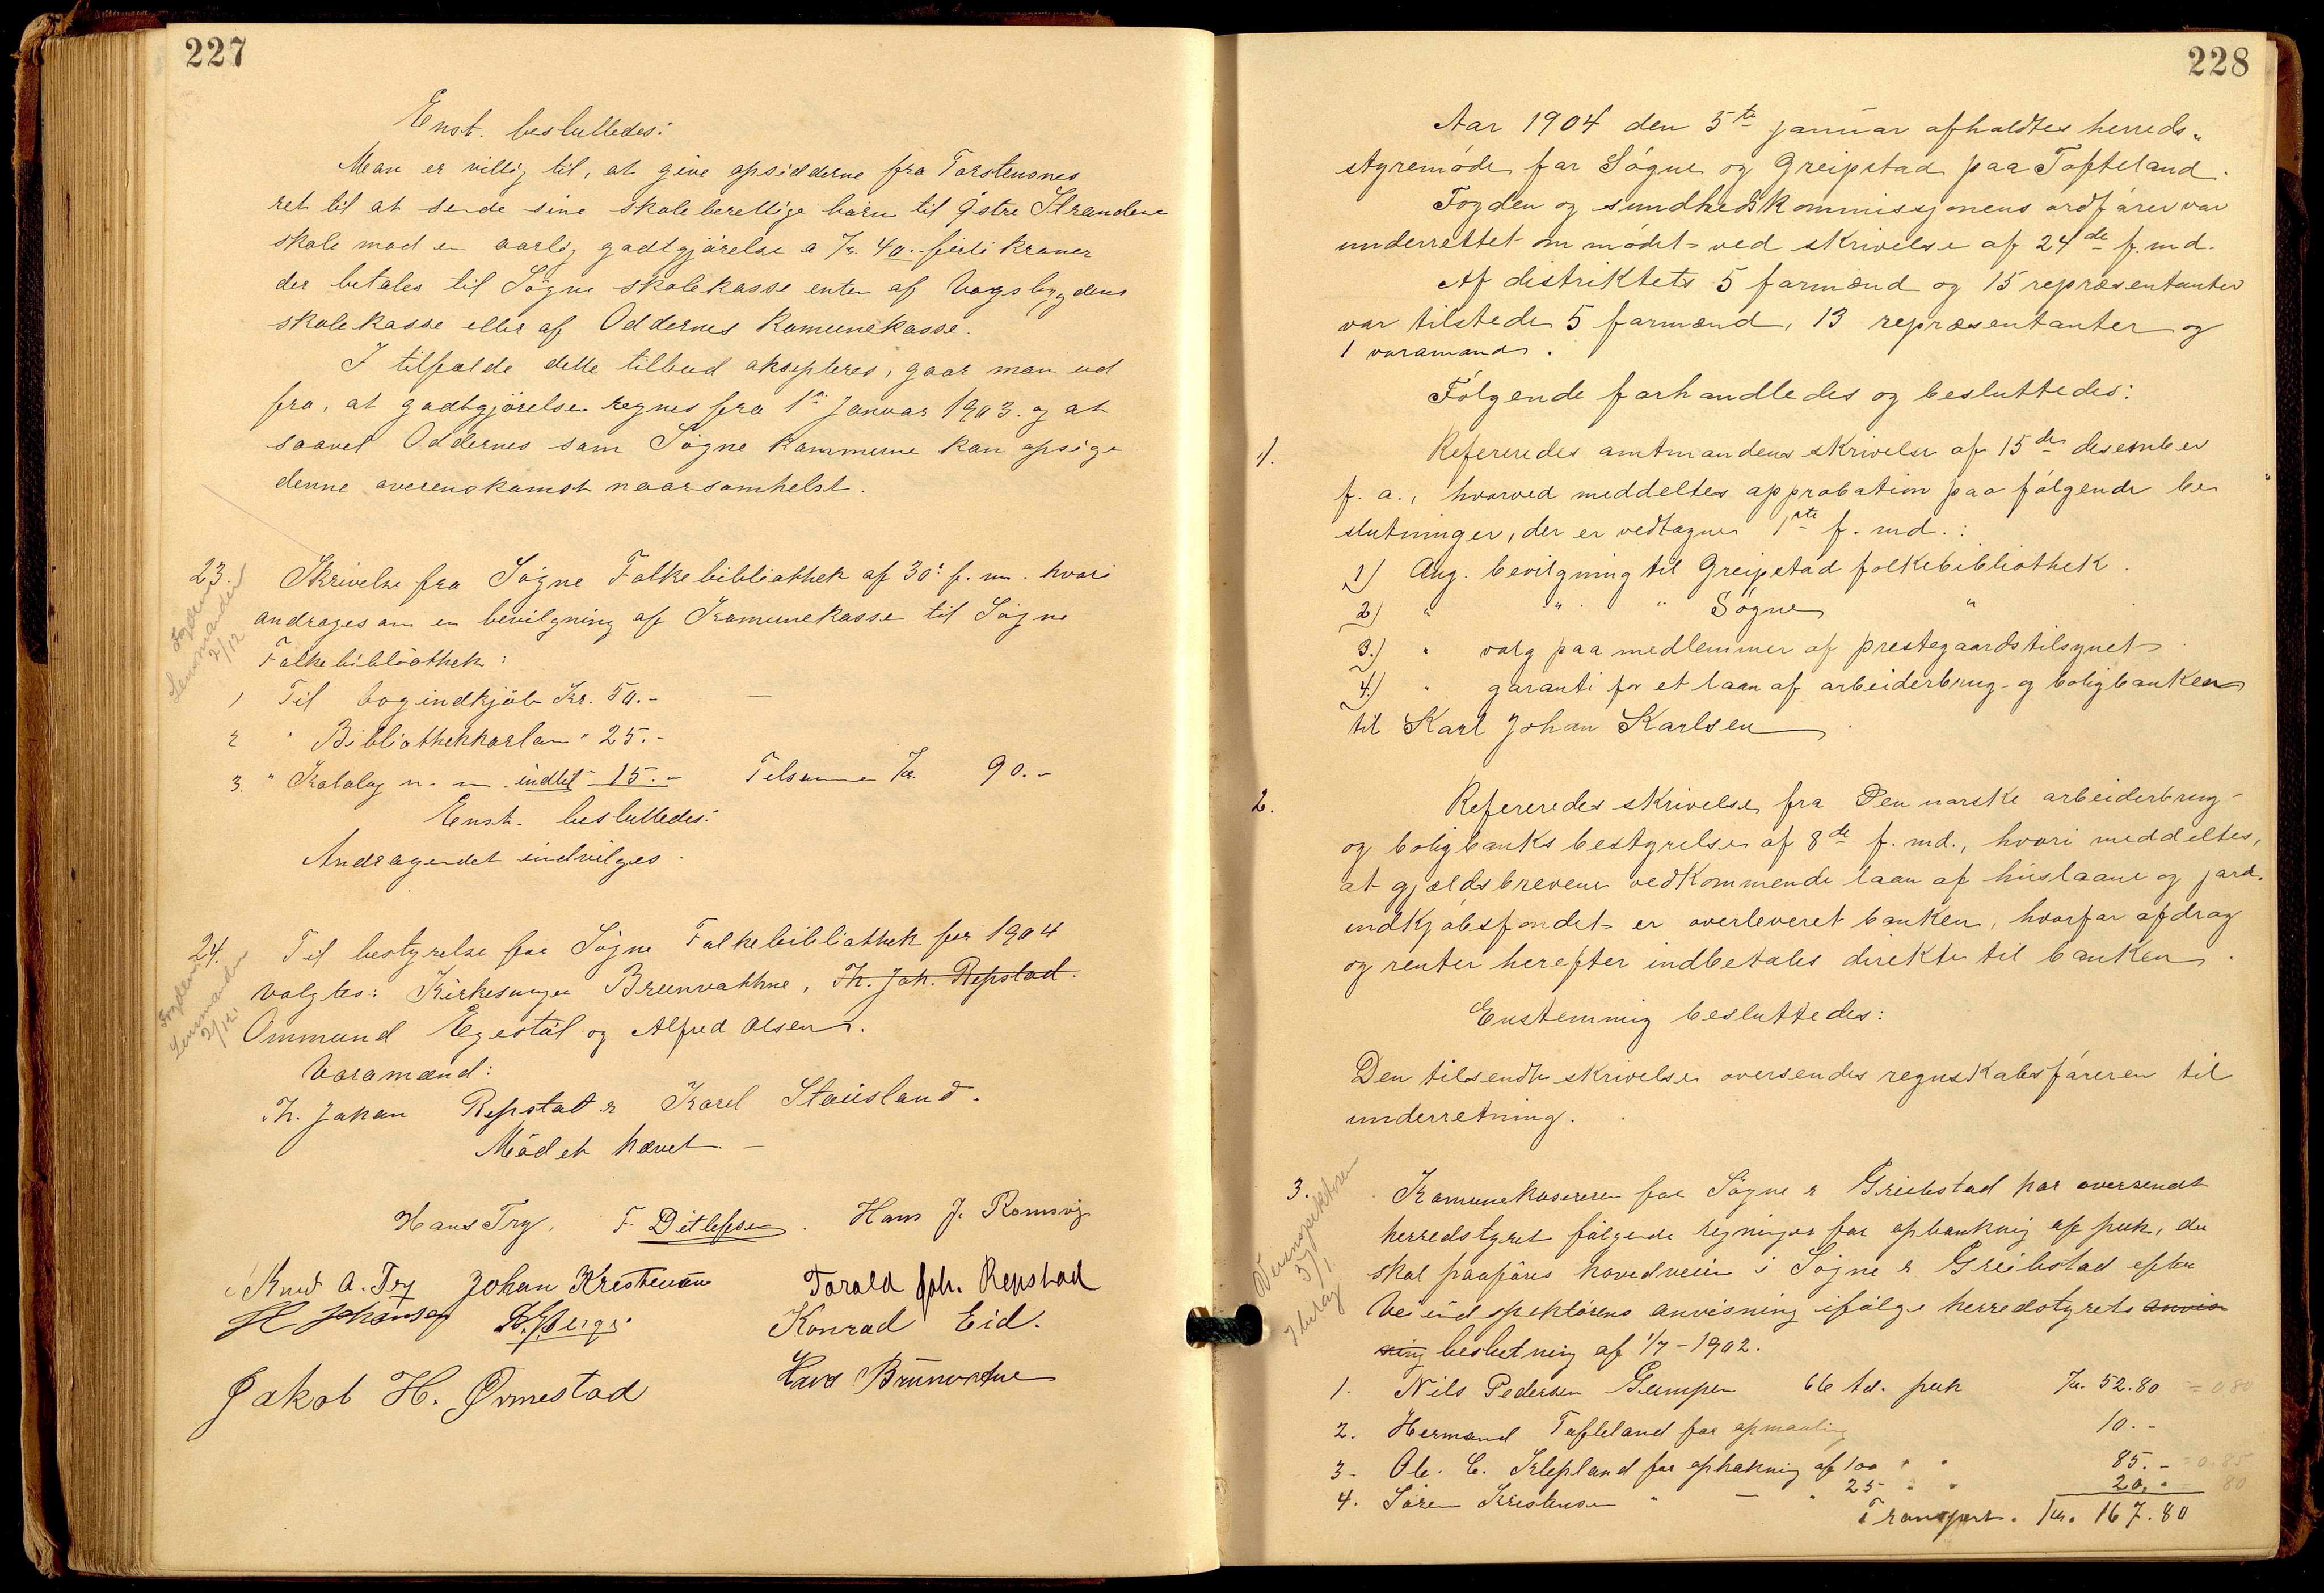 227
Enst. besluttedes:
Man er villig til, at give opsidderne fra Torstensnes
ret til at sende sine skoleberettige børn til Østre Strandene
skole mod en aarlig godtgjørelse a Kr. 40.- firti kroner
der betales til Søgne skolekasse enten af Vogsbygdens
skolekasse eller af Oddernes Komunekasse.
I tilfælde dette tilbud aksepteres, gaar man ud
fra, at godtgjørelsen regnes fra 1ste Januar 1903. og at
saavel Oddernes som Søgne Kommune kan opsige
denne overenskomst naarsomhelst.
23. Skrivelse fra Søgne Folkebibliothek af 30. f. m. hvori
andrages om en bevilgning af Komunekasse til Søgne
Folkebibliothek:
Fogden
Lensmanden
2/12
1 Til bogindkjøb Kr. 50.-
2 " Bibliothekkarløn " 25.-
3. " Katalog m. m. indtil 15.- Tilsammen Kr. 90.-
Enst. besluttedes:
Andragendet indvilges.
24. Til bestyrelse for Søgne Folkebibliothek for 1904
valgtes: Kirkesanger Brunvathne, Th. Joh. Repstad.
Ommund Egestøl og Alfred Olsen.
Fogden
Lensmanden
2/12.
Varamænd:
Th. Johan Repstad & Karel Stausland.
Mødet hævet.
Hans Try. F. Ditlefsen. Hans J. Romsvig
Knud A. Try Johan Kristensen Torald Joh. Repstad
H Johansen Konrad Eid.
Jakob H. Ørmestad Hans Brunvathne
228
Aar 1904 den 5te januar afholdtes herreds-
styremøde for Søgne og Greipstad paa Tofteland.
Fogden og sundhedskommissjonens ordfører var
underrettet om mødet ved skrivelse af 24de f. md.
Af distriktets 5 formænd og 15 repræsentanter
var tilstede 5 formænd, 13 repræsentanter og
1 varamand.
Følgende forhandledes og besluttedes:
1). Refereredes amtmandens skrivelse af 15de desember
f. a., hvorved meddeltes approbation paa følgende be-
slutninger, der er vedtagne 1ste f. md.:
1) Ang. bevilgning til Greipstad folkebibliothek.
2) " " " Søgne " .
3.) " valg paa medlemmer af prestegaardstilsynet
4.) " garanti for et laan af arbeiderbrug- og boligbanken
til Karl Johan Karlsen.
2. Refereredes skrivelse fra Den norske arbeiderbrug-
og boligbanks bestyrelse af 8de f. md., hvori meddeltes,
at gjældsbrevene vedkommende laan af huslaane og jord-
indkjøbsfondet er overleveret banken, hvorfor afdrag
og renter herefter indbetales direkte til banken.
Enstemmig besluttedes:
Den tilsendte skrivelse oversendes regnskabsføreren til
underretning.
3. Komunekasereren for Søgne & Greibstad har oversendt
herredstyret følgende regninger for opbankning af puk, der
skal paaføres hovedveien i Søgne & Greibstad efter
Veiindspektørens anvisning ifølge herredstyrets anvis-
ning beslutning af 1/7-1902.
Veiinspektøren
5/1
1. Nils Pedersen Gumpen 66 td. puk Kr. 52.80 = 0.80
2. Hermand Tofteland for opmaaling 10.-
3. Ole C. Klepland for ophakning af 100 " " 85.- = 0.85
4. Søren Kristensen " — " 25 " " 20.- 80
Transport. Kr. 167.80